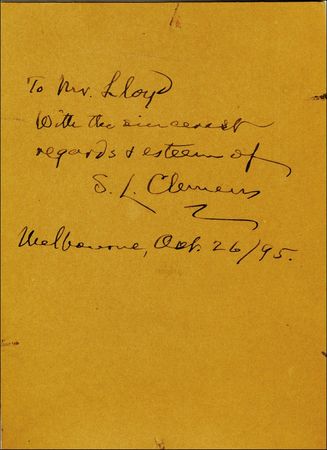 To Mr. Lloyd
With the sincerest
regards & esteem of
S. L. Clemens
Melbourne, Oct. 26/95.